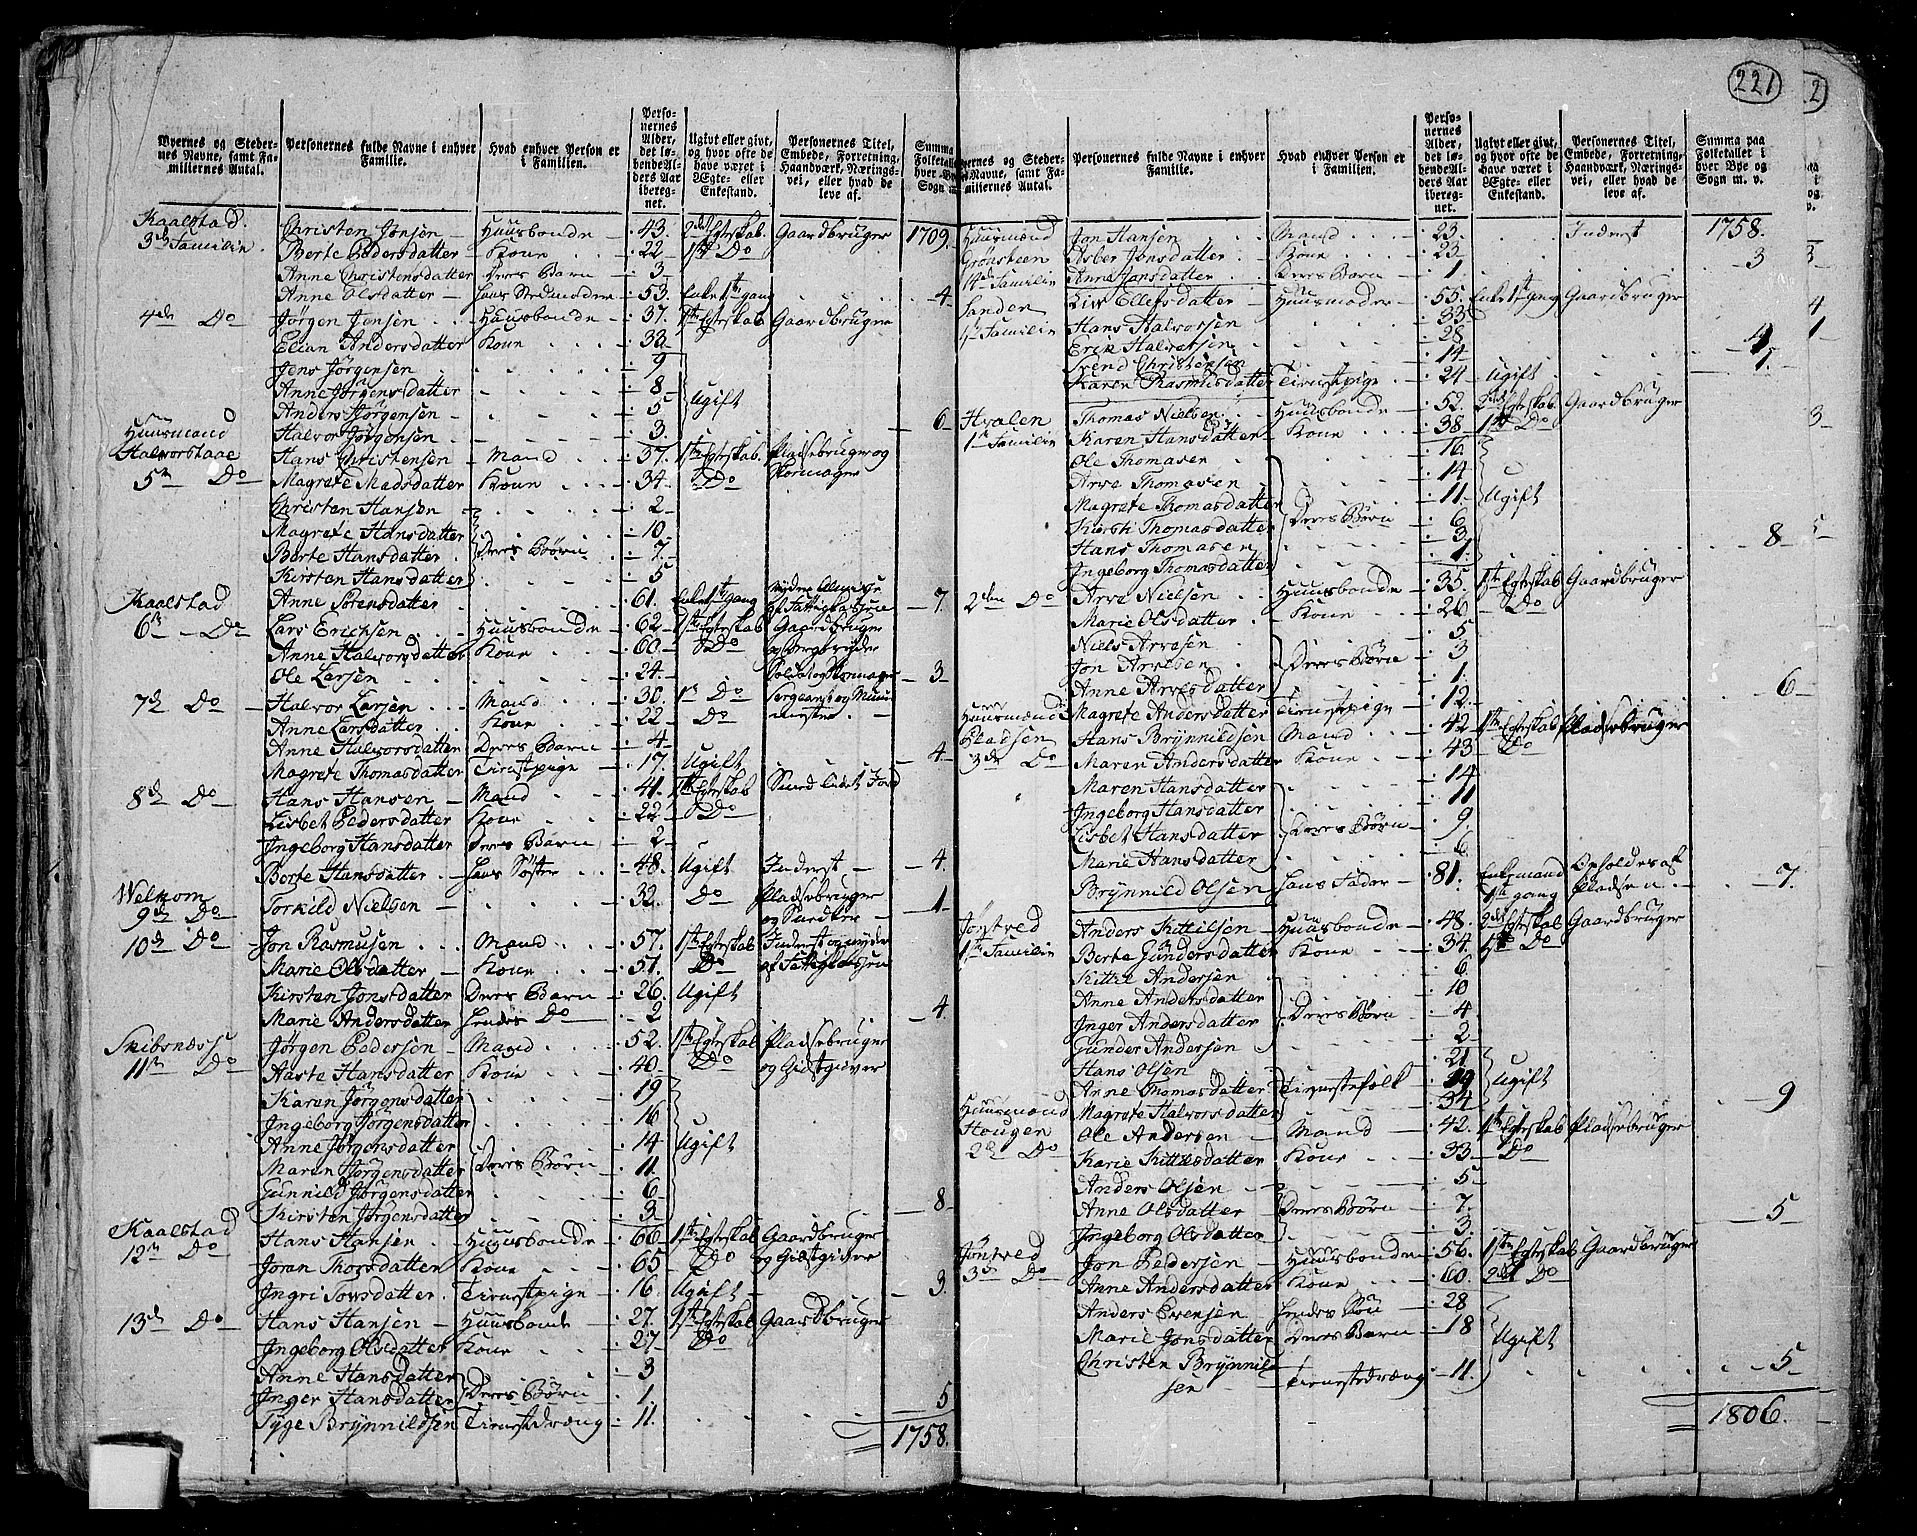 221
2
Byernes og Stedernes Navne, samt Familiernes Antal.
Personernes fulde Navne i enhver Familie.
Hvad enhver Person er i Familien.
Personernes Alder, det løbende Alders Aar iberegnet.
Ugivt eller givt, og hvor ofte de have været i Ægte- eller Enkestand.
Personernes Titel, Embede, Forretning, Haandværk, Næringsvei, eller hvad de leve af.
Kaalstad. Christen Jensen Huusbonde 43. 2det Egteskab. Gaardbruger 1709.
3de Familie Berte Pedersdatter Kone 22 1ste Do
Anne Christensdatter Deres Barn 3
Anne Olsdatter hans Stedmoder 53. Enke 1ste gang 4
4de Do Jørgen Jensen Huusbonde 37. 1ste Egteskab Gaardbruger
Andersdatter Kone 33
Jens Jørgensen 9
Anne Jørgensdatter 8
Anders Jørgensen 5 Ugift
Halvor Jørgensen 3. 6
Huusmand
Halvorstaae Hans Christensen Mand 37 1ste Egteskab. Pladsebruger og
5te Do Magrete Madsdatter Kone 34. Do Skomager
Christen Hansen 2
Magrete Hansdatter 10
Berte Hansdatter Deres Børn 7
Kirsten Hansdatter 5
Kaalstad Anne Sørensdatter 61. Enke 1ste gang 7
6te Do Lars Erichsen Huusbonde 62 1ste Egteskab Gaardbruger
Anne Halvorsdatter Kone 60 Do
Ole Larsen 24 Soldat og Skomager 3
7de Do Halvor Larsen Mand 30 1ste Do Sergeant og
Anne Larsdatter Kone 22 Do
Anne Halvorsdatter Deres Barn 4
Magrete Thomasdatter Tienestpige 17 Ugift 4
8de Do Hans Hansen Mand 41. 1ste Egteskab
Lisbet Pedersdatter Kone 22 Do
Ingeborg Hansdatter Deres Barn 2
Berte Hansdatter hans Søster 48. Ugift Inderst 4.
Welkom
9de Do Torkild Nielsen 32. Do Pladsebruger 1
10de Do Jon Rasmusen Mand 57. 1ste Egteskab Inderst og nyder
Marie Olsdatter Kone 51. Do af Fattigkassen
Kirsten Jonsdatter Deres Barn 26 Ugift
Marie Andersdatter hendes Do 2 4.
Skibsnæss Jørgen Pedersen Mand 52. 1ste Egteskab Pladsebruger
11te Do Aaste Hansdatter Kone 40 Do og Giestgiver
Karen Jørgensdatter 19
Ingeborg Jørgensdatter 16
Anne Jørgensdatter 14 Ugift
Maren Jørgensdatter Deres Børn 11
Gunnild Jørgensdatter 6
Kirsten Jørgensdatter 3 8
Kaalstad Hans Hansen Huusbonde 66 1ste Egteskab Gaardbruger
12te Do Joran Thorsdatter Kone 65 Do og Giestgiver
Ingri Tovsdatter Tienestpige 16. Ugift 3
13de Do Hans Hansen Huusbonde 27. 1ste Egteskab Gaardbruger
Ingeborg Olsdatter Kone 27 Do
Anne Hansdatter 3
Inger Hansdatter Deres Børn 1.
Tyge Brynnildsen Tienestdreng 11. 5
1758.
Personernes fulde Navne i enhver Familie.
Hvad enhver Person er i Familien.
Personernes Alder, det løbende Alders Aar iberegnet.
Ugivt eller givt, og hvor ofte de have været i Ægte- eller Enkestand.
Personernes Titel, Embede, Forretning, Haandværk, Næringsvei, eller hvad de leve af.
Summa paa Folketallet i hver Bye og Sogn m. v.
Huusmand Jon Hansen Mand 23. Inderst 1758.
Grønsteen Asber Jonsdatter Kone 23
14de Familie Anne Jonsdatter Deres Barn 1 3
Sanden Liv Ellefsdatter Huusmoder 55. Enke 1ste gang Gaardbruger
1ste Familie Hans Halvorsen 33
Erik Halvorsen 28
Svend Christensen 14
Karen Rasmusdatter Tienestpige 24 Ugift
Hvalen Thomas Nielsen Huusbonde 52. 2det Egteskab Gaardbruger
1ste Familie Karen Hansdatter Kone 38 1ste Do
Ole Thomasen 16
Arve Thomasen 14
Magrete Thomasdatter 11 Ugift
Kirsti Thomasdatter Deres Børn 6
Hans Thomasen 3
Ingeborg Thomasdatter 1. 8
2den Do Arve Nielsen Huusbonde 35. 1ste Egteskab Gaardbruger
Marie Olsdatter Kone 26 Do
Niels Arvesen 5
Jon Arvesen Deres Børn 3
Anne Arvesdatter 1.
Magrete Andersdatter Tienestpige 12. 6
Huusmand
Pladsen Hans Brynnildsen Mand 42 1ste Egteskab Pladsebruger
3de Do Maren Andersdatter Kone 43 Do
Maren Hansdatter 14
Ingeborg Hansdatter 11
Lisbet Hansdatter Deres Børn 9
Marie Hansdatter 6
Brynnild Olsen hans Fader 81. Enkemand 1ste gang Opholdes af Pladsen 7.
Jøntved Anders Kittilsen Huusbonde 48. 2det Egteskab Gaardbruger
1ste Familie Berte Gundersdatter Kone 34. 1ste Do
Kittil Andersen 6
Anne Andersdatter 10
Inger Andersdatter Deres Børn 4
Gunder Andersen 2
Hans Olsen 21
Anne Thomasdatter Tienestefolk 19 Ugift
Magrete Halvorsdatter 34 9
Huusmand
Hougen Ole Andersen Mand 42. 1ste Egteskab Pladsebruger
2de Do Karie Kittilsdatter Kone 33 Do
Anders Olsen 5
Anne Olsdatter Deres Børn 7.
Ingeborg Olsdatter 3. 5
Jøntved Jon Pedersen Huusbonde 56. 1ste Egteskab Gaardbruger
3de Do Anne Andersdatter Kone 60 2det Do
Anders Evensen hendes Søn 28
Marie Jonsdatter Deres Barn 18 Ugift
Christen Brynnildsen Tienestedreng 11. 5
1806.